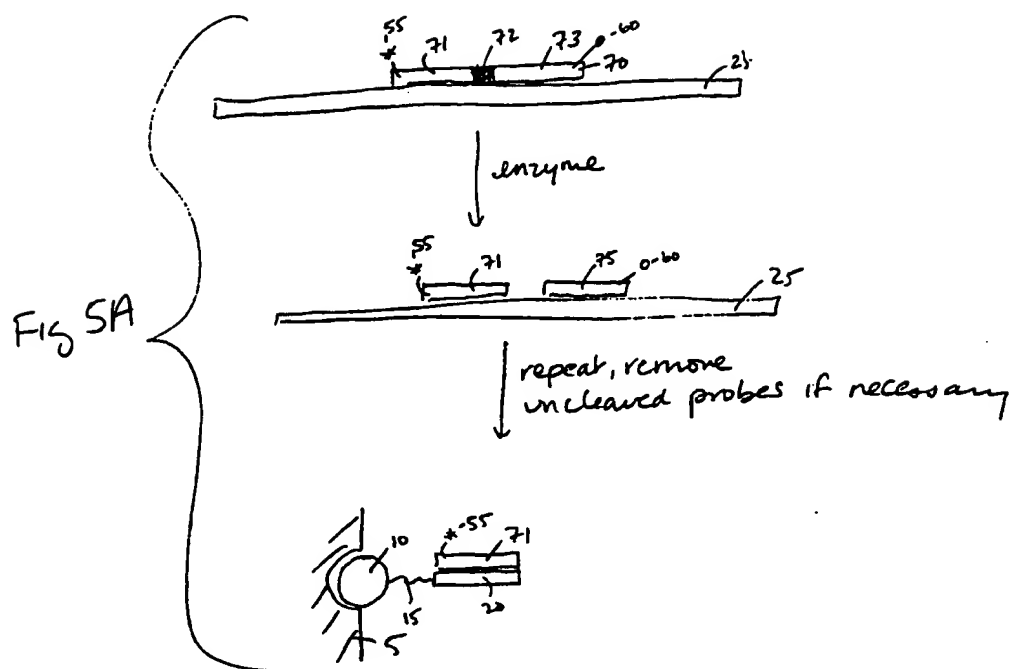 *-55 71 72 73 -60
70
25
enzyme
*-55 71 75 -60
25
Fig 5A
repeat, remove
uncleaved probes if necessary
10 *-55 71
15 20
5